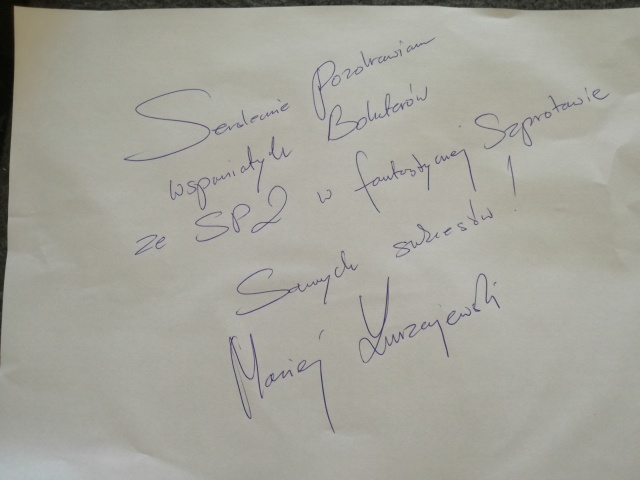 Serdecznie Pozdrawiam
wspaniałych Bohaterów
ze SP2 w fantastycznej Szprotawie
Samych sukcesów!
Maciej Kurzajewski